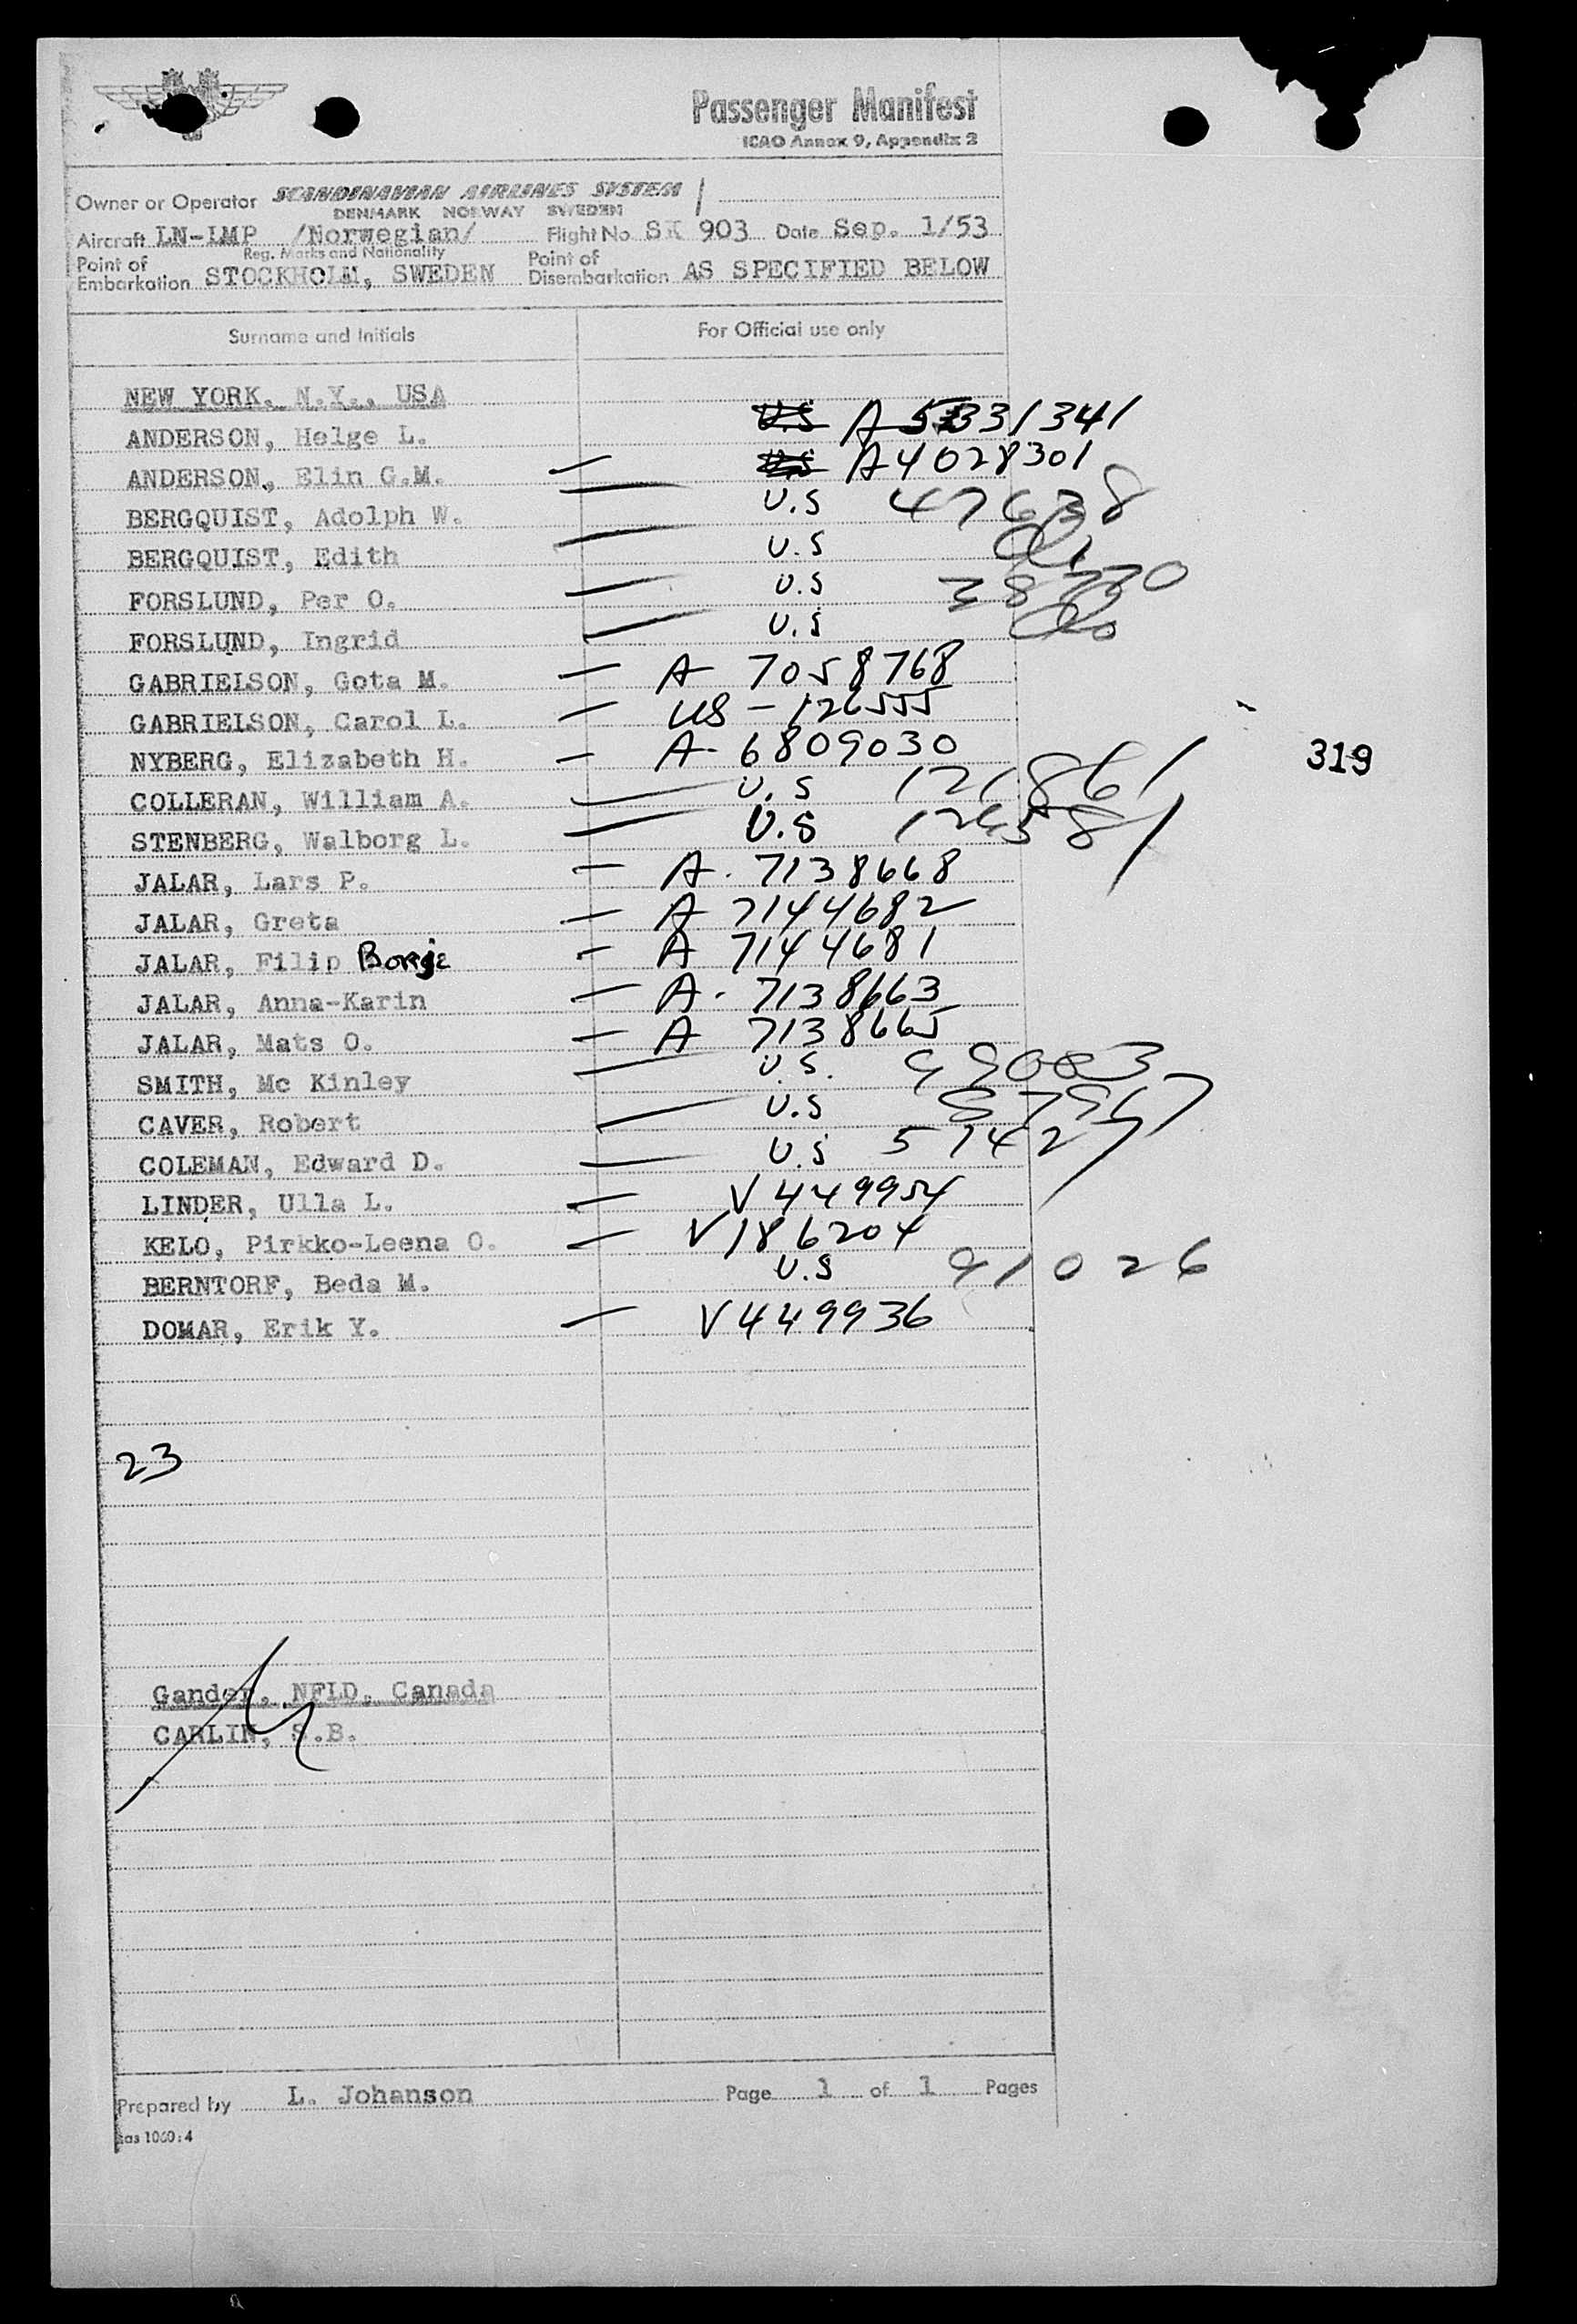 Passenger Manifest
ICAO Annex 9, Appendix 2
Owner or Operator SCANDINAVIAN AIRLINES SYSTEM
DENMARK NORWAY SWEDEN
Aircraft LN-LMP /Norwegian/ Flight No. SK 903 Date Sep. 1/53
Reg. Marks and Nationality
Point of Embarkation STOCKHOLM, SWEDEN Point of Disembarkation AS SPECIFIED BELOW
Surname and Initials For Official use only
NEW YORK, N.Y., USA
ANDERSON, Helge L. U.S A 5331341
ANDERSON, Elin G.M. — A4028301
BERGQUIST, Adolph W. — U.S 47638
BERGQUIST, Edith — U.S
FORSLUND, Per O. — U.S 38330
FORSLUND, Ingrid — U.S
GABRIELSON, Gota M. — A 7058768
GABRIELSON, Carol L. — US - 126555
NYBERG, Elizabeth H. — A- 6809030
319
COLLERAN, William A. — U.S 121861
STENBERG, Walborg L. — U.S
JALAR, Lars P. — A. 7138668
JALAR, Greta — A 7144682
JALAR, Filip Borje — A 7144681
JALAR, Anna-Karin — A. 7138663
JALAR, Mats O. — A 7138665
SMITH, Mc Kinley — U.S. 99083
CAVER, Robert — U.S
COLEMAN, Edward D. — U.S 51427
LINDER, Ulla L. — V449954
KELO, Pirkko-Leena O. — V186204
BERNTORF, Beda M. U.S 91026
DOMAR, Erik Y. — V449936
23
Gander, NFLD, Canada
CARLIN, S.B.
Prepared by L. Johanson Page 1 of 1 Pages
sas 1060:4